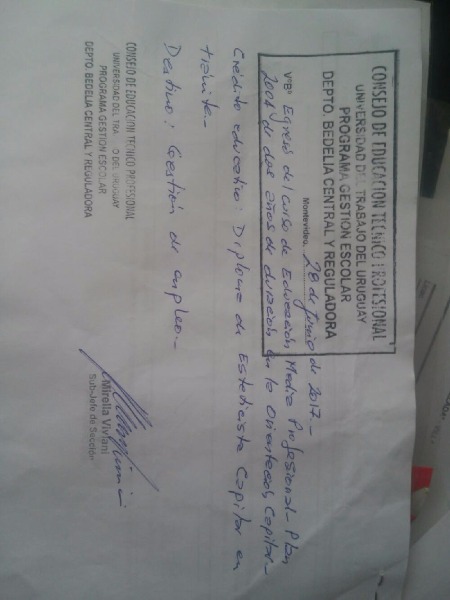 CONSEJO DE EDUCACION TECNICO PROFESIONAL
UNIVERSIDAD DEL TRABAJO DEL URUGUAY
PROGRAMA GESTION ESCOLAR
DEPTO. BEDELIA CENTRAL Y REGULADORA
Montevideo, 28 de junio de 2017.-
VºBº Egresó del curso de Educación Media Profesional - Plan
2004 de dos años de duración en la Orientación, Capilar.-
Crédito educativo: Diploma de Esteticista Capilar en
trámite.-
Destino: Gestión de empleo.-
CONSEJO DE EDUCACION TECNICO PROFESIONAL
UNIVERSIDAD DEL TRA O DEL URUGUAY
PROGRAMA GESTION ESCOLAR
DEPTO. BEDELIA CENTRAL Y REGULADORA
Mirella Viviani
Sub-Jefe de Sección